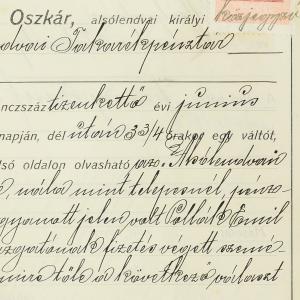 Oszkár, alsólendvai királyi közjegyző
dvai Takarékpénztár
nczszáz tizenkettő évi junius
napján, dél után 3 3/4 órakor egy váltót,
lső oldalon olvasható az Alsólendvai
nála mint telepesnél, pénz-
gyanatt jelen volt Pollák Emil
izgatónak fizetés végett szemé
mire tőle a következő választ